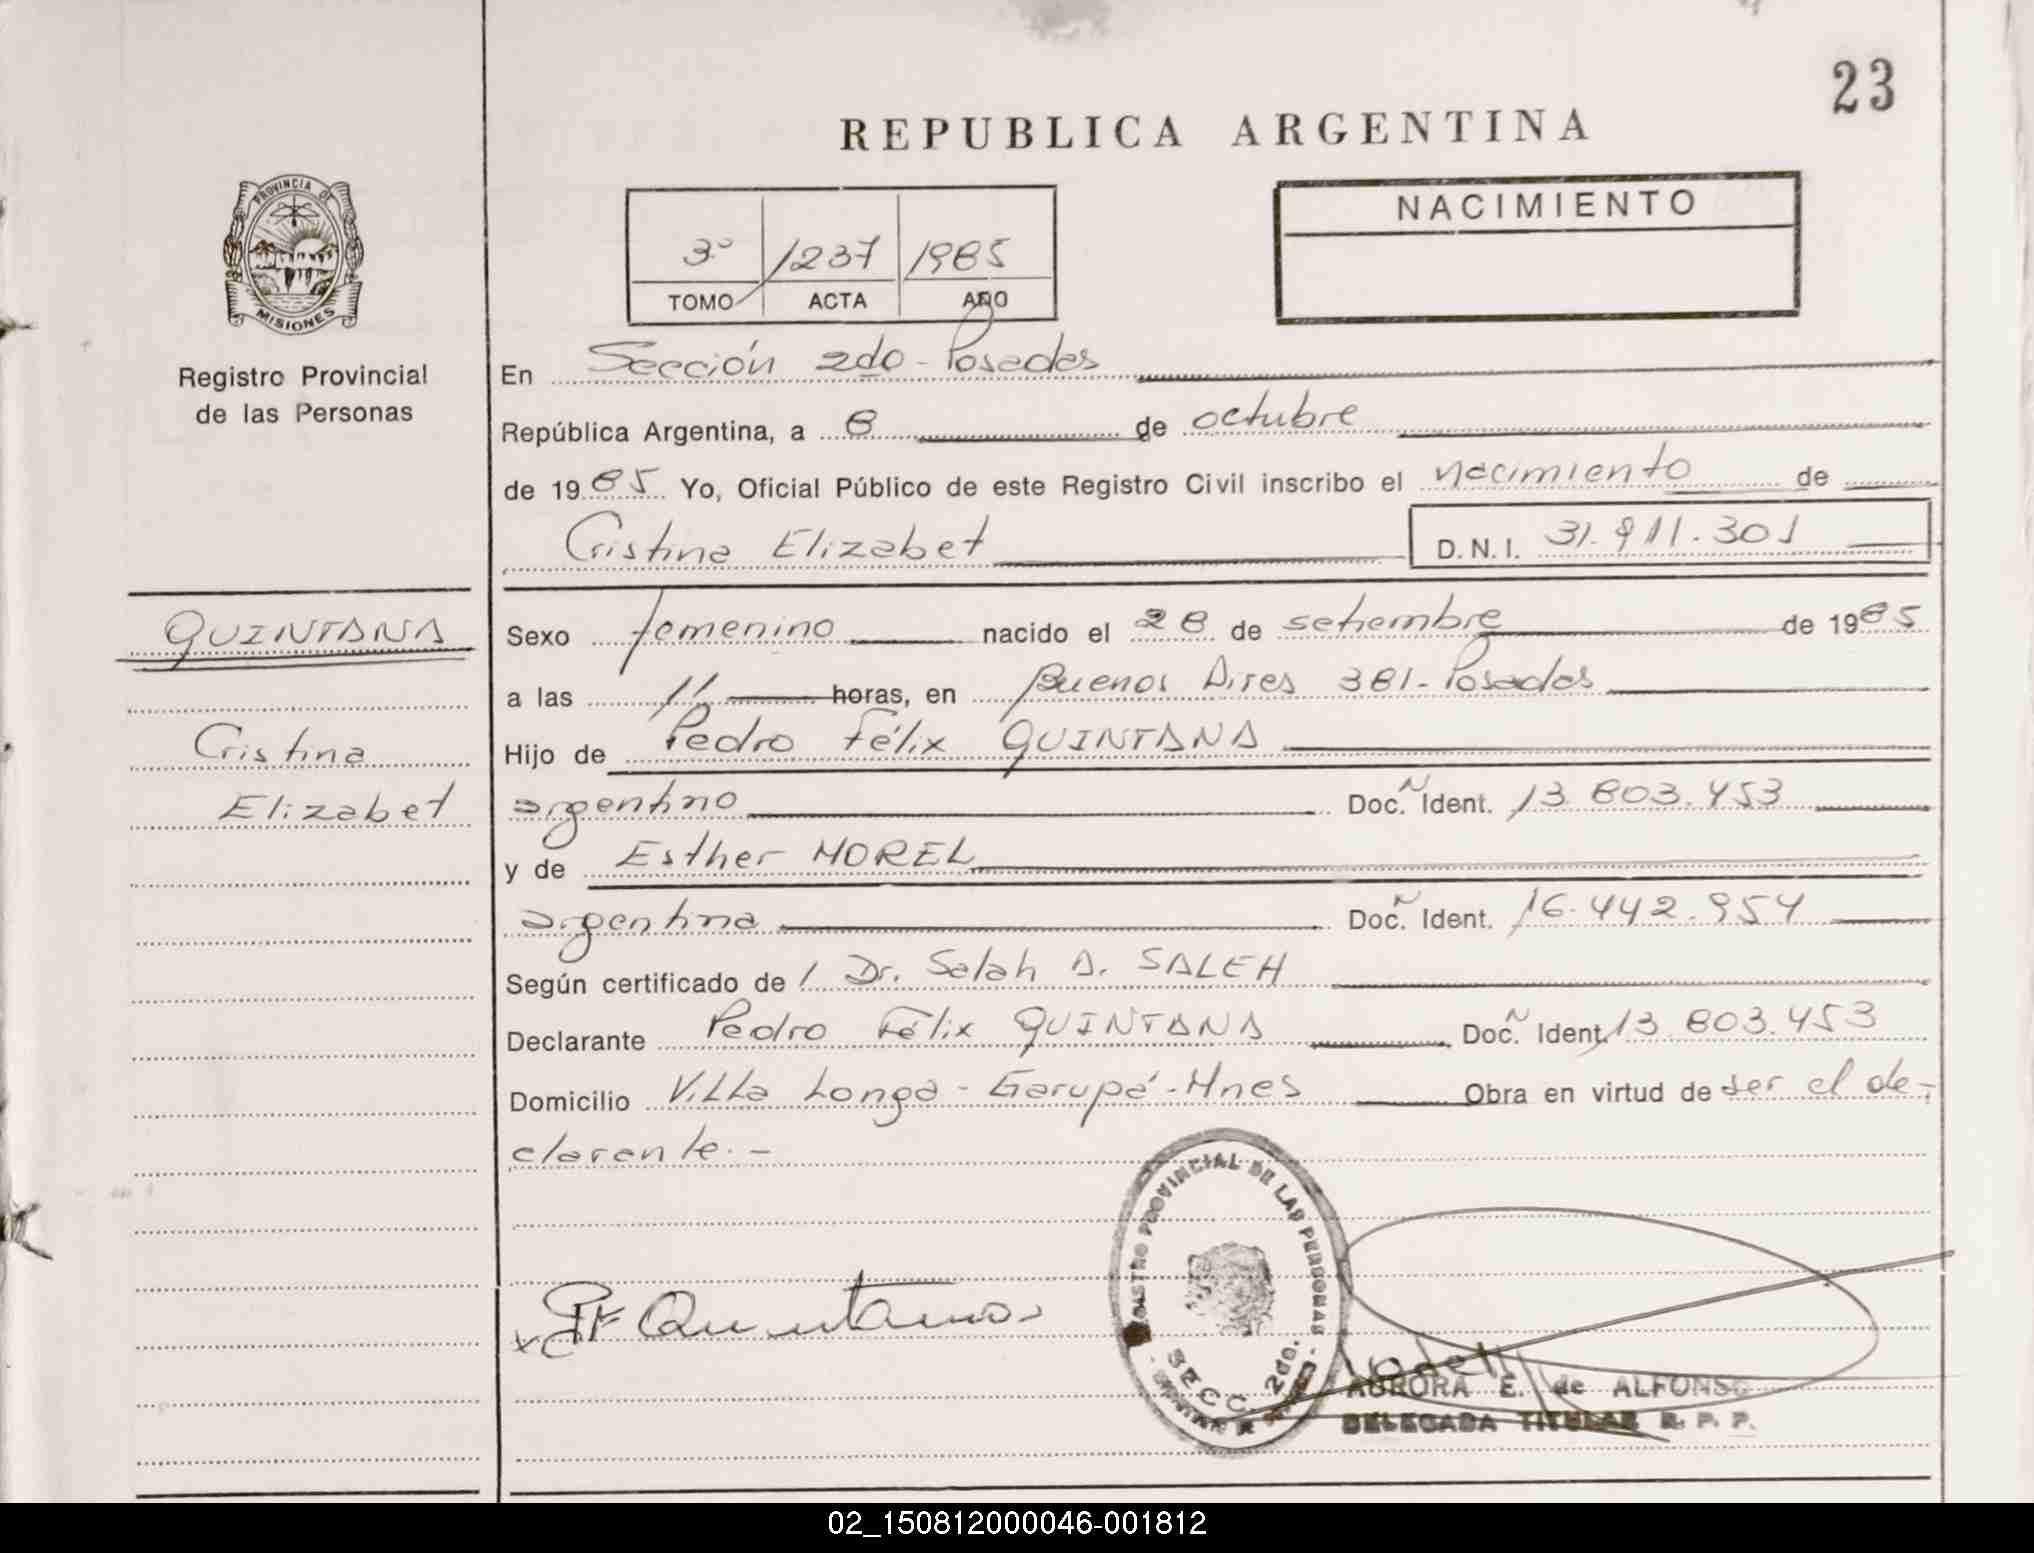 23
REPUBLICA ARGENTINA
PROVINCIA DE
MISIONES
Registro Provincial
de las Personas
3º 1237 1985
TOMO ACTA AÑO
NACIMIENTO
En Sección 2do - Posadas
República Argentina, a 8 de octubre
de 1985 Yo, Oficial Público de este Registro Civil inscribo el nacimiento de
Cristina Elizabet D.N.I. 31.911.301
QUINTANA
Cristina
Elizabet
Sexo femenino nacido el 28 de setiembre de 1985
a las 11 horas, en Buenos Aires 381 - Posadas
Hijo de Pedro Félix QUINTANA
argentino Doc. Ident. 13.803.453
y de Esther MOREL
argentina Doc. Ident. 16.442.954
Según certificado de 1 Dr. Salah A. SALEH
Declarante Pedro Félix QUINTANA Doc. Ident. 13.803.453
Domicilio Villa Longa - Garupá - Mnes Obra en virtud de ser el de-
clarante. -
REGISTRO PROVINCIAL DE LAS PERSONAS
SECC. 2do.
PF Quintana
AURORA E. de ALFONSO
DELEGADA TITULAR R. P. P.
02_150812000046-001812